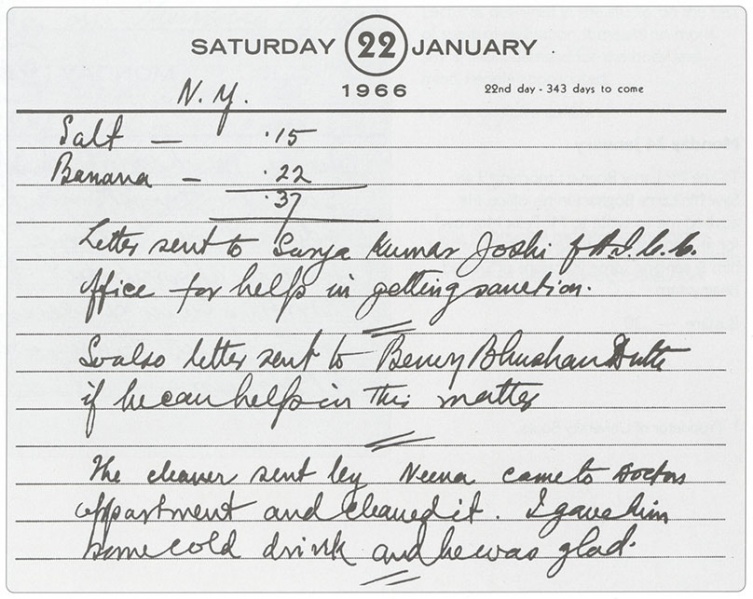 SATURDAY 22 JANUARY
1966
22nd day - 343 days to come
N. Y.
Salt — .15
Banana — .22
.37
Letter sent to Surya Kumar Joshi of A.I.C.C.
office for help in getting sanction.
So also letter sent to Benoy Bhushan Dutta
if he can help in this matter
The cleaner sent by Neena came to Doctors
appartment and cleaned it. I gave him
some cold drink and he was glad.